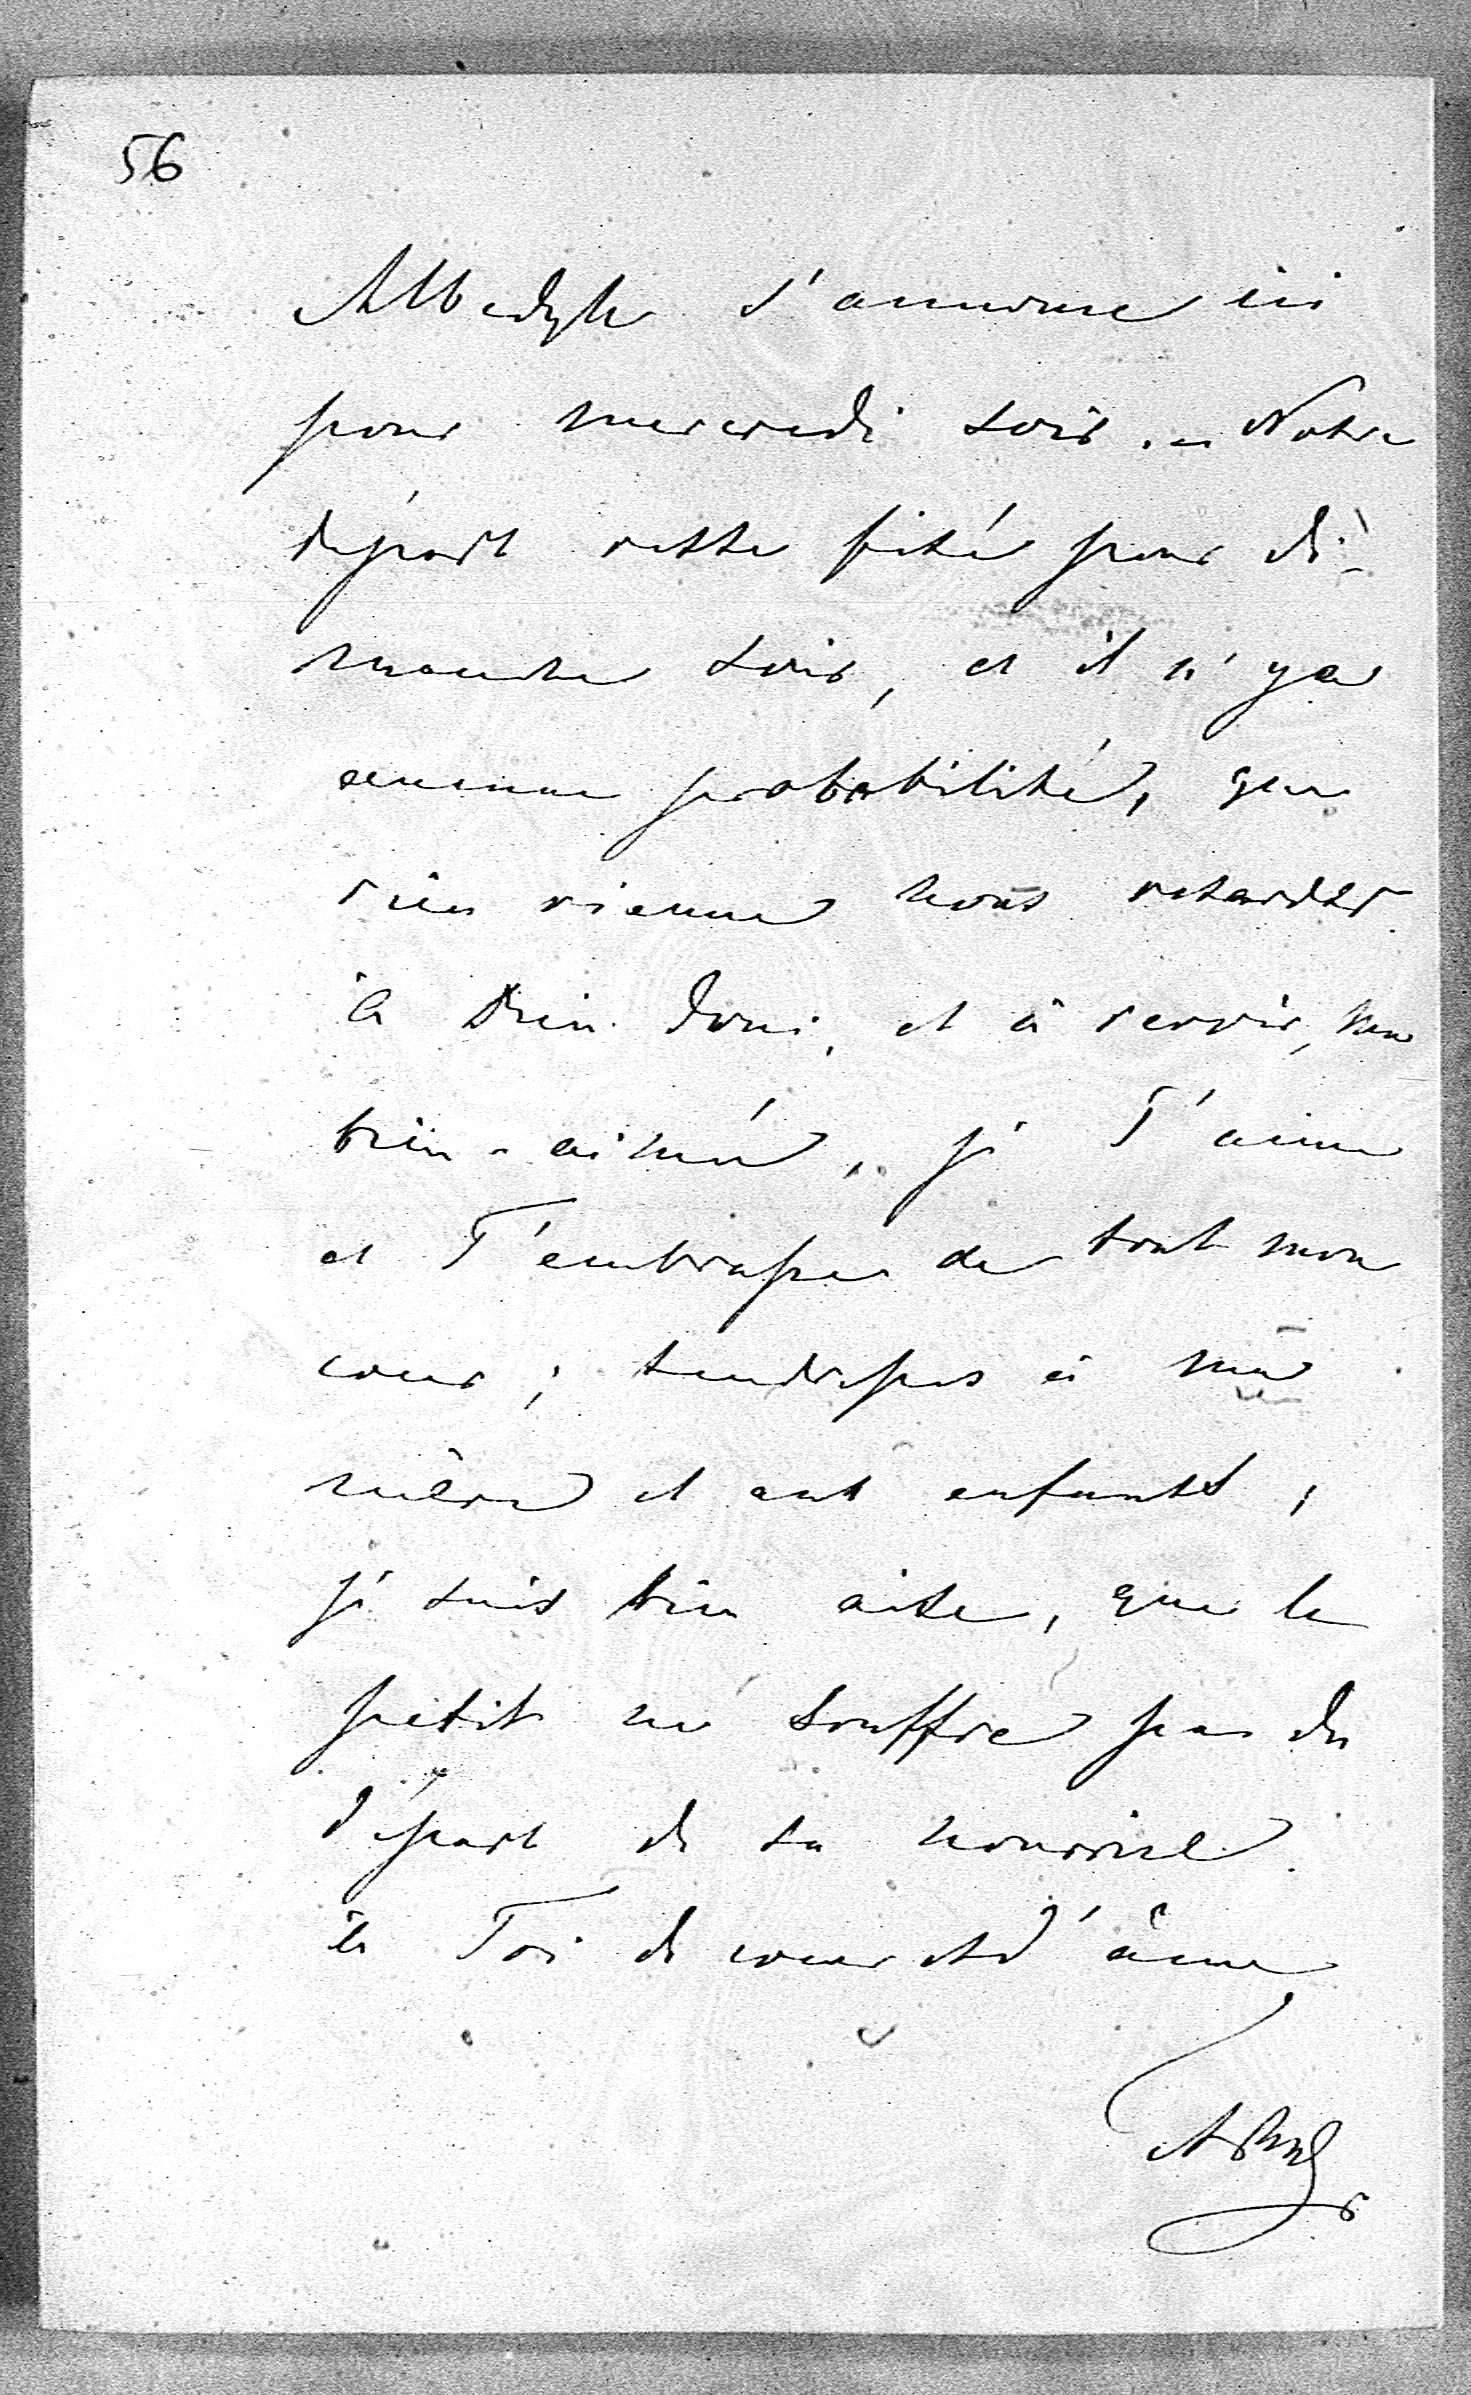 56
Albedyle s'annonce ici
pour mercredi soir. – Notre
départ reste fixé pour di-
manche soir, et il n'y a
aucune probabilité, que
rien vienne nous retarder.
à Dieu donc, et à revoir, mon
bien-aimé, je T'aime
et T'embrasse de tout mon
coeur; tendresses à ma
mère et aux enfants;
je suis bien aise, que le
petit ne souffre pas du
départ de sa nourrice.
à Toi de coeur et d'âme